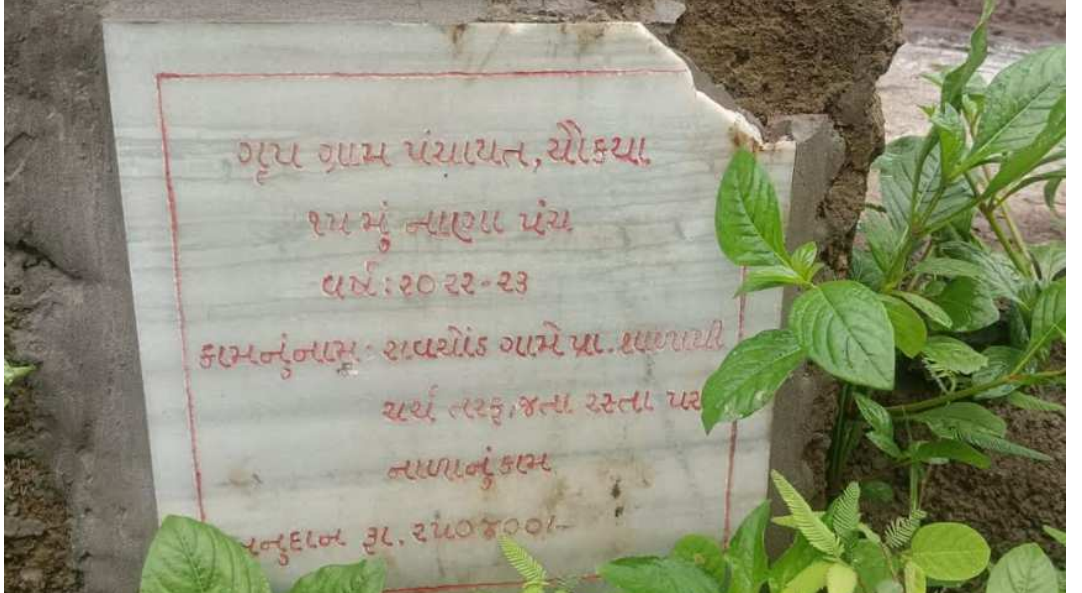 ગૃપ ગ્રામ પંચાયત, ચૌકયા
૧૫મું નાણા પંચ
વર્ષ:૨૦૨૨-૨૩
કામનુંનામ: રાવચોંડ ગામે પ્રા. શાળાથી
ચર્ચ તરફ, જતા રસ્તા પર
નાળાનુંકામ
રૂા. ૨૫૦૪૦૦/-